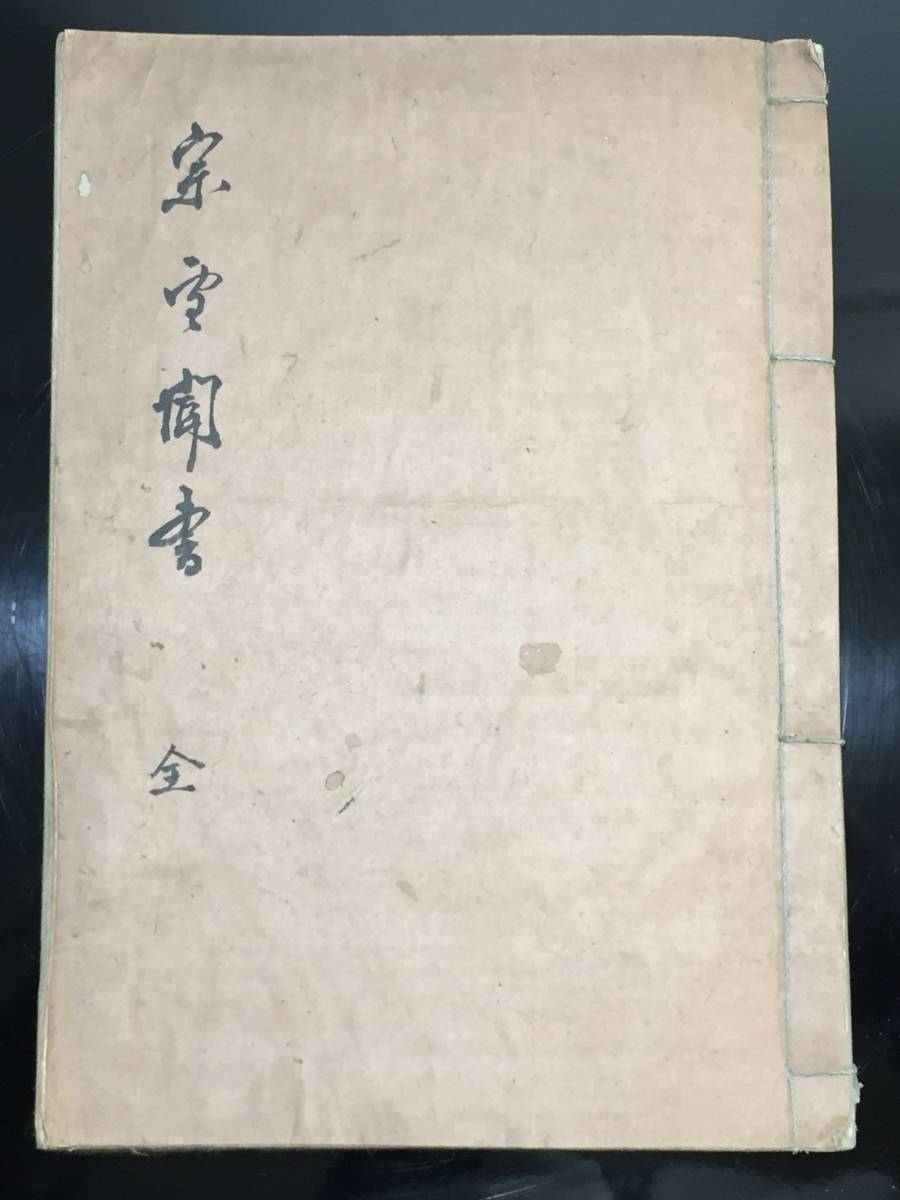 宗雪聞書 全